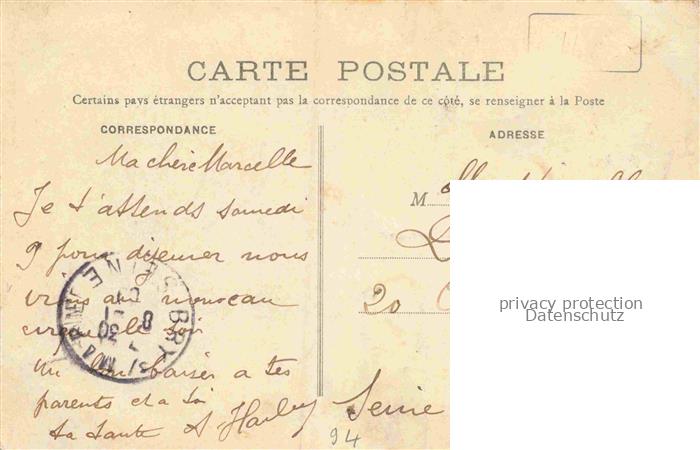 CARTE POSTALE
Certains pays étrangers n'acceptent pas la correspondance de ce côté, se renseigner à la Poste
CORRESPONDANCE
Ma chère Marcelle
Je t'attends samedi
9 pour déjeuner nous
irons au nouveau
cirque le soir
Un bon baiser a tes
parents et a toi
Ta tante
ADRESSE
M
20
Seine
94
BRY S/ MARNE
SEINE
privacy protection
Datenschutz